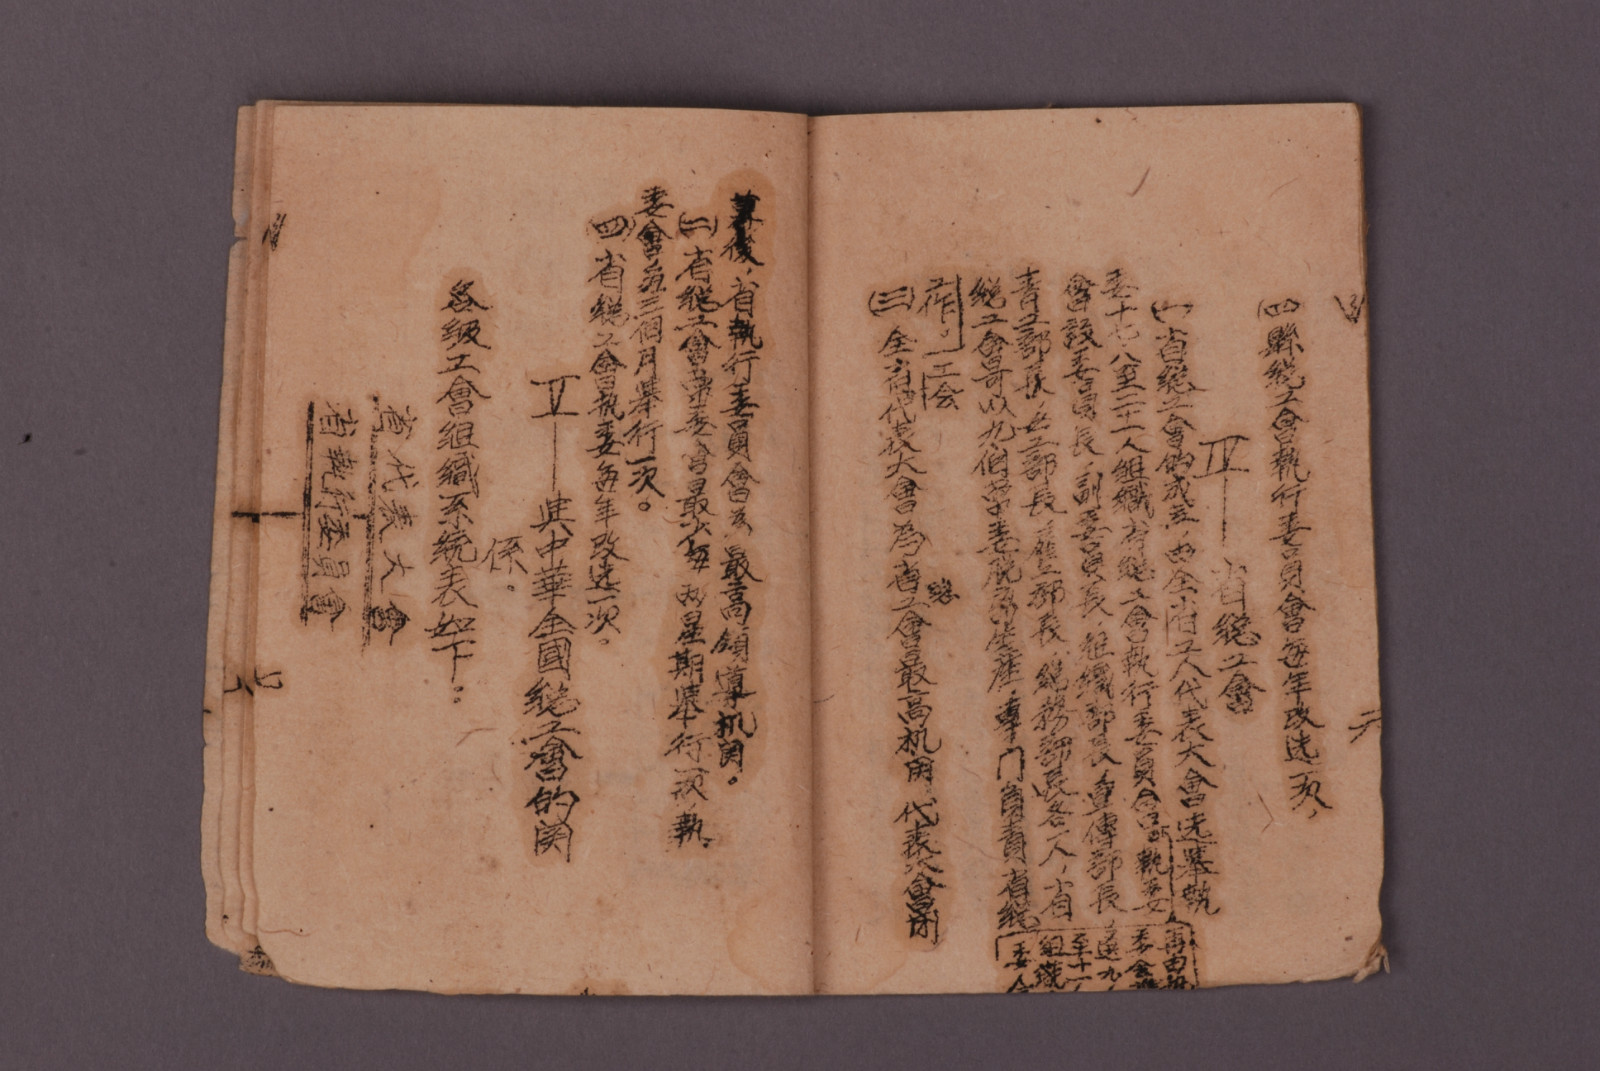 四縣總工會執行委員會每年改选一次，
Ⅳ——省總工會
(一)省總工會的成立，由全省工人代表大會选舉執
委十七八至二十一人組織省總工會執行委員會，執委
會設委員長，副委員長，組織部長，宣傳部長
青工部長，女工部長，部長，總務部長各一人，省
總工會可以九個常委脫離生產，專門負責省總
工作，工会
再由執
委会选
选九
至十一
組織
委会
(三)全省代表大會為省總工會最高机関，代表大會闭
幕後，省執行委員會為最高領導机関。
(二)省總工會常委會最少每两星期舉行一次執
委會每三個月舉行一次。
(四)省總工會執委每年改选一次。
Ⅴ——與中華全國總工會的関
係。
各級工會組織系統表如下：
省代表大會
省執行委員會
六
七